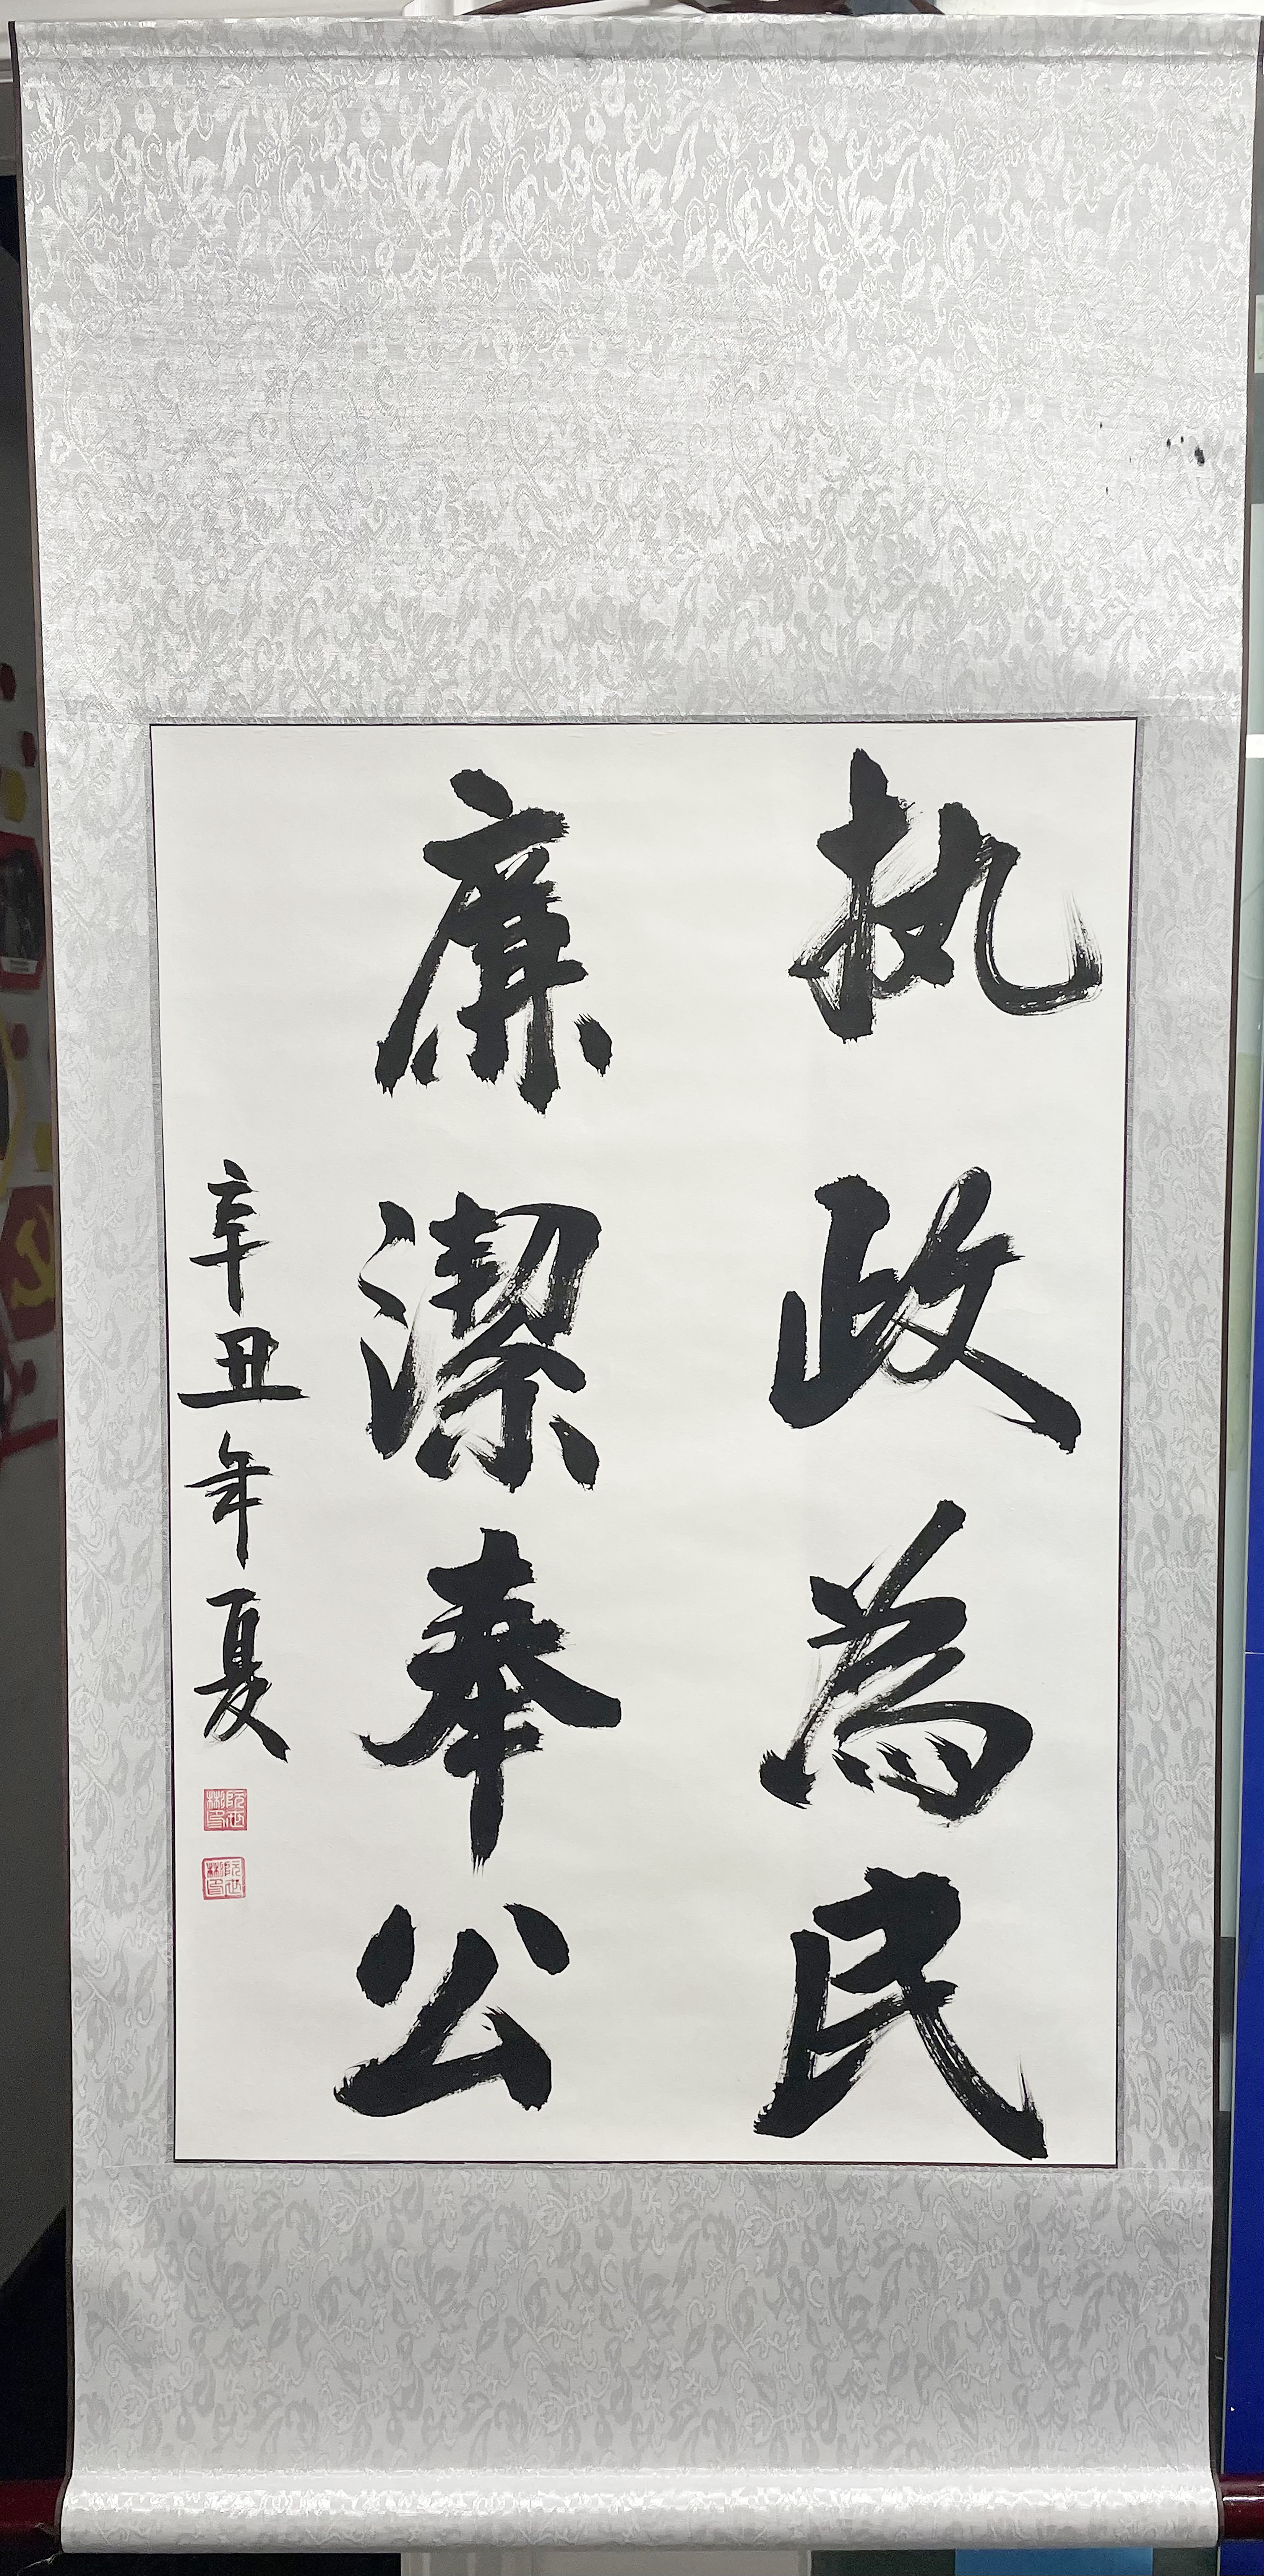 执政為民
廉潔奉公
辛丑年夏